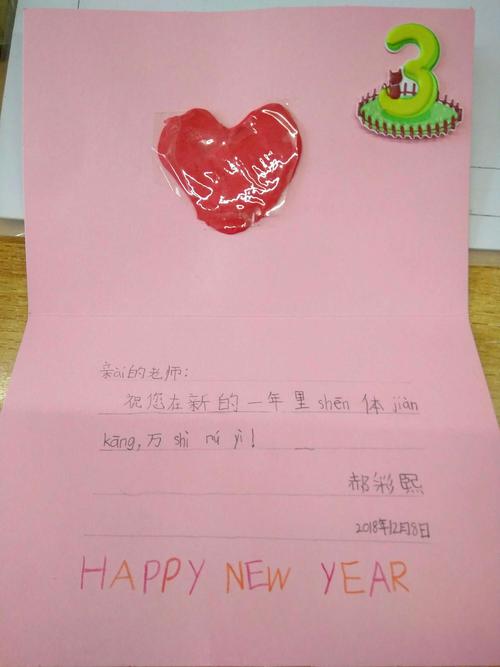 3
亲ài的老师:
祝您在新的一年里shēn体jiàn
kāng,万shì rú yì!
郝彩熙
2018年12月8日
HAPPY NEW YEAR